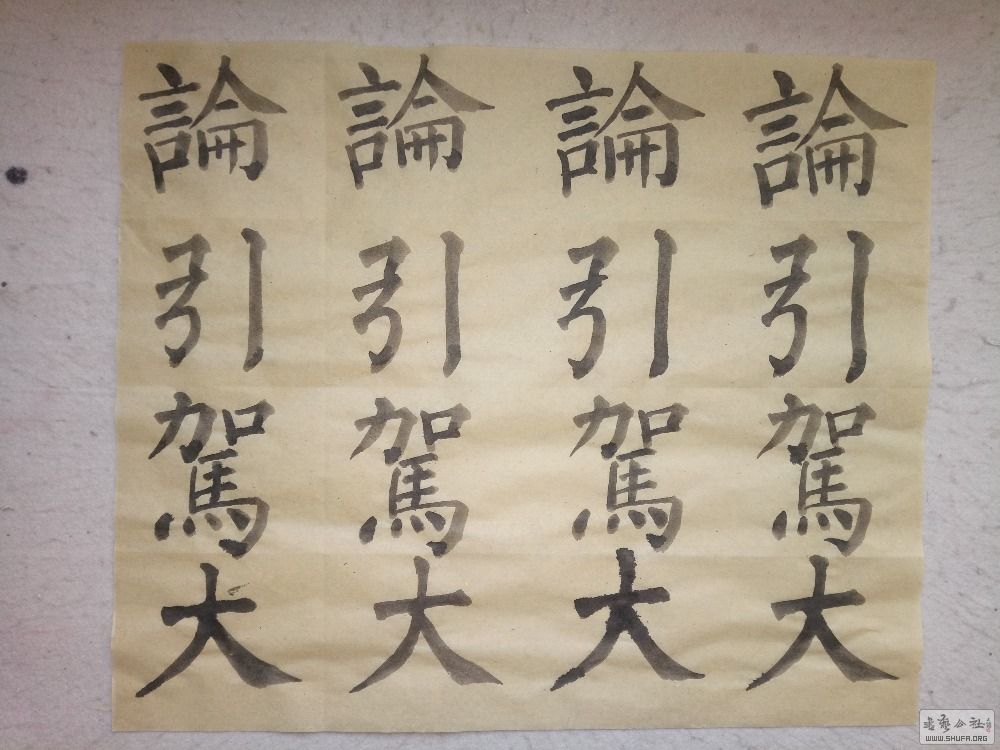 論引駕大
論引駕大
論引駕大
論引駕大
公社
WWW.SHUFA.ORG